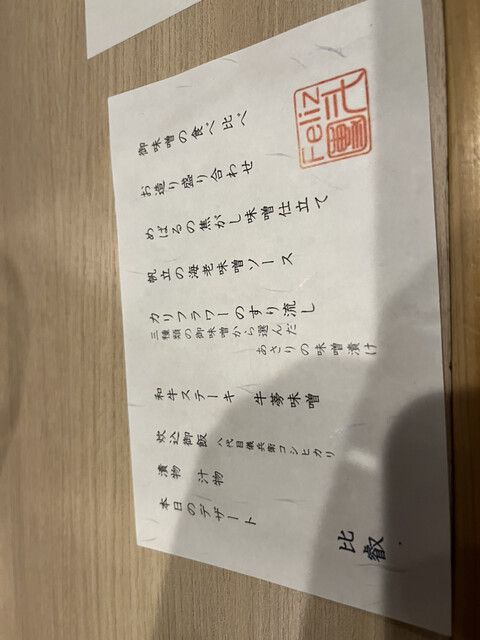 御味噌の食べ比べ
お造り盛り合わせ
めばるの焦がし味噌仕立て
帆立の海老味噌ソース
カリフラワーのすり流し
三種類の御味噌から選んだ
あさりの味噌漬け
和牛ステーキ 牛蒡味噌
炊込御飯 八代目儀兵衛コシヒカリ
漬物 汁物
本日のデザート
比叡
Feliz